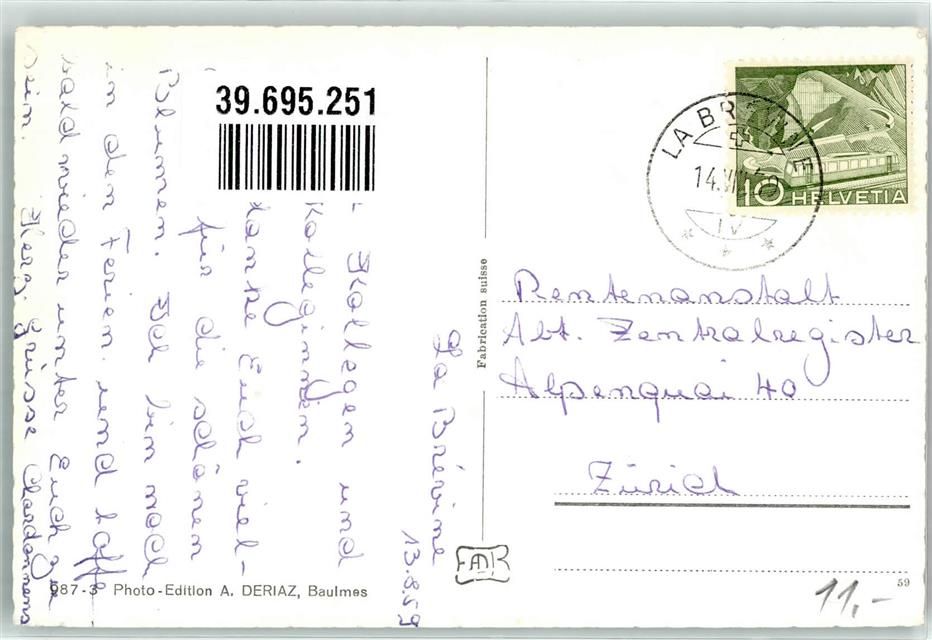 La Brévine
13.8.59
Kollegen und
Kolleginnen.
danke Euch viel-
für die schönen
Blumen. Ich bin noch
in den Ferien. und hoffe
bald wieder unter Euch zu
sein.
Herz. Grüsse
39.695.251
LA BRÉVINE
14.VIII.59
10 HELVETIA
Fabrication suisse
Rentenanstalt
Abt. Zentralregister
Alpenquai 40
Zürich
987-3 Photo-Edition A. DERIAZ, Baulmes
59
11,-